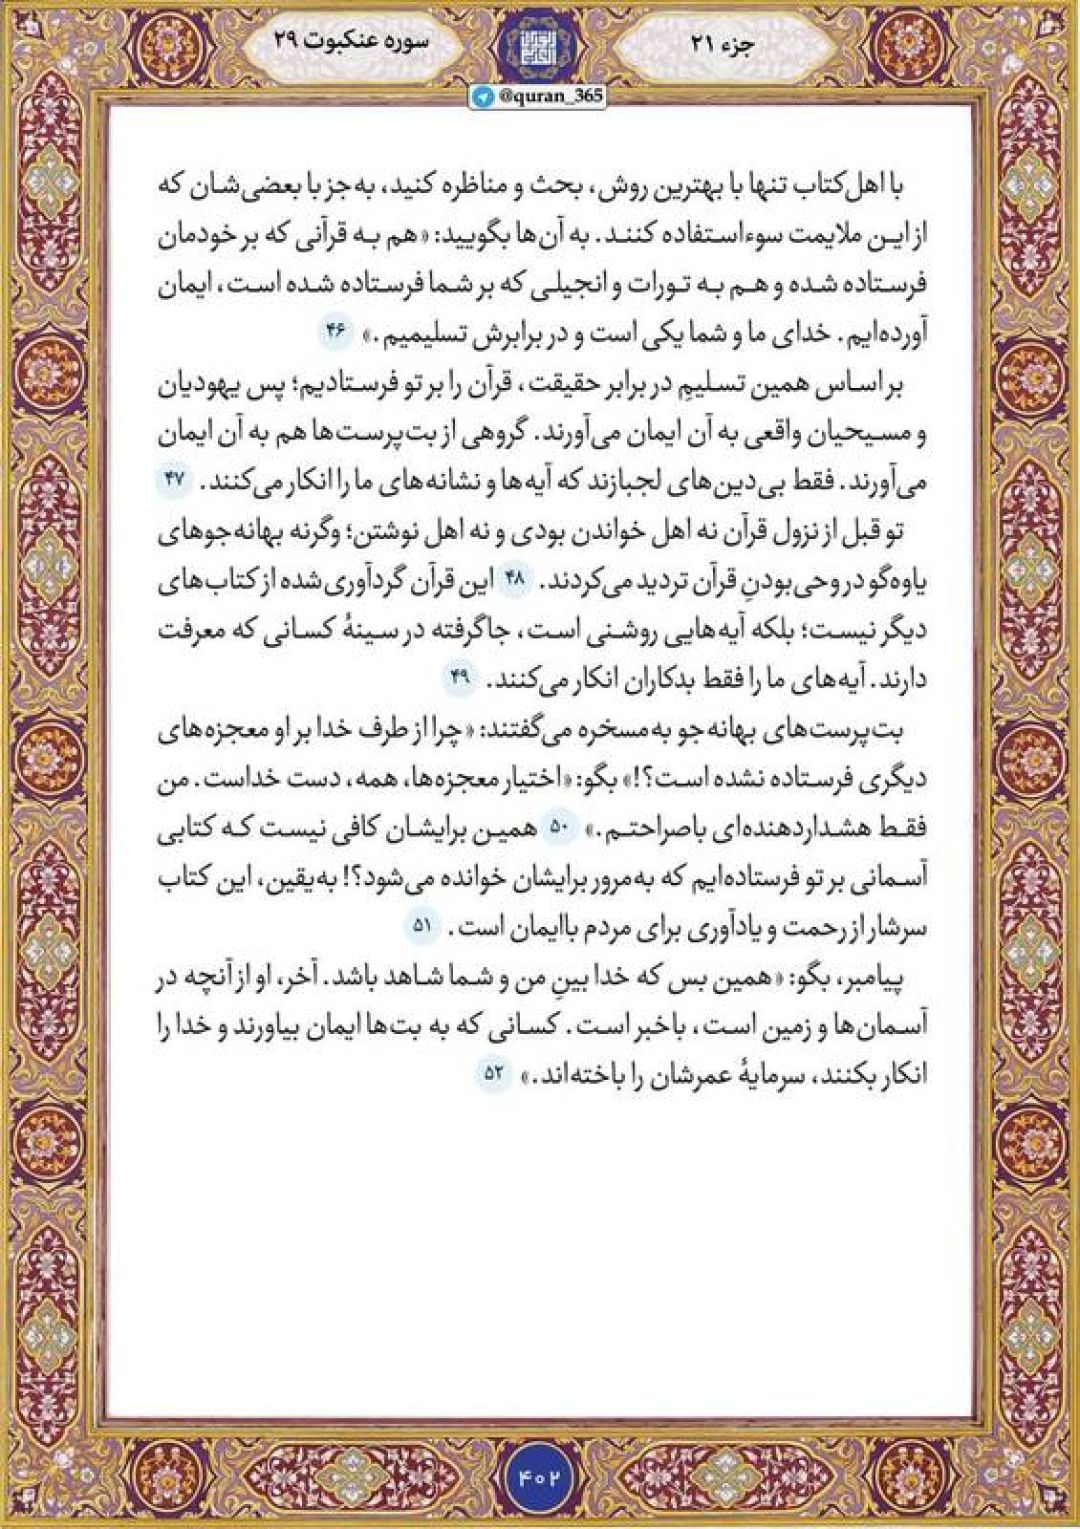 جزء ۲۱
سوره عنکبوت ۲۹
@quran_365
با اهل‌کتاب تنها با بهترین روش، بحث و مناظره کنید، به‌جز با بعضی‌شان که
از این ملایمت سوءاستفاده کنند. به آن‌ها بگویید: «هم به قرآنی که بر خودمان
فرستاده شده و هم به تورات و انجیلی که بر شما فرستاده شده است، ایمان
آورده‌ایم. خدای ما و شما یکی است و در برابرش تسلیمیم.» ۴۶
بر اساس همین تسلیمِ در برابر حقیقت، قرآن را بر تو فرستادیم؛ پس یهودیان
و مسیحیان واقعی به آن ایمان می‌آورند. گروهی از بت‌پرست‌ها هم به آن ایمان
می‌آورند. فقط بی‌دین‌های لجبازند که آیه‌ها و نشانه‌های ما را انکار می‌کنند. ۴۷
تو قبل از نزول قرآن نه اهل خواندن بودی و نه اهل نوشتن؛ وگرنه بهانه‌جوهای
یاوه‌گو در وحی‌بودنِ قرآن تردید می‌کردند. ۴۸ این قرآن گردآوری‌شده از کتاب‌های
دیگر نیست؛ بلکه آیه‌هایی روشنی است، جاگرفته در سینهٔ کسانی که معرفت
دارند. آیه‌های ما را فقط بدکاران انکار می‌کنند. ۴۹
بت‌پرست‌های بهانه‌جو به‌مسخره می‌گفتند: «چرا از طرف خدا بر او معجزه‌های
دیگری فرستاده نشده است؟!» بگو: «اختیار معجزه‌ها، همه، دست خداست. من
فقط هشداردهنده‌ای باصراحتم.» ۵۰ همین برایشان کافی نیست که کتابی
آسمانی بر تو فرستاده‌ایم که به‌مرور برایشان خوانده می‌شود؟! به‌یقین، این کتاب
سرشار از رحمت و یادآوری برای مردم باایمان است. ۵۱
پیامبر، بگو: «همین بس که خدا بینِ من و شما شاهد باشد. آخر، او از آنچه در
آسمان‌ها و زمین است، باخبر است. کسانی که به بت‌ها ایمان بیاورند و خدا را
انکار بکنند، سرمایهٔ عمرشان را باخته‌اند.» ۵۲
۴۰۲